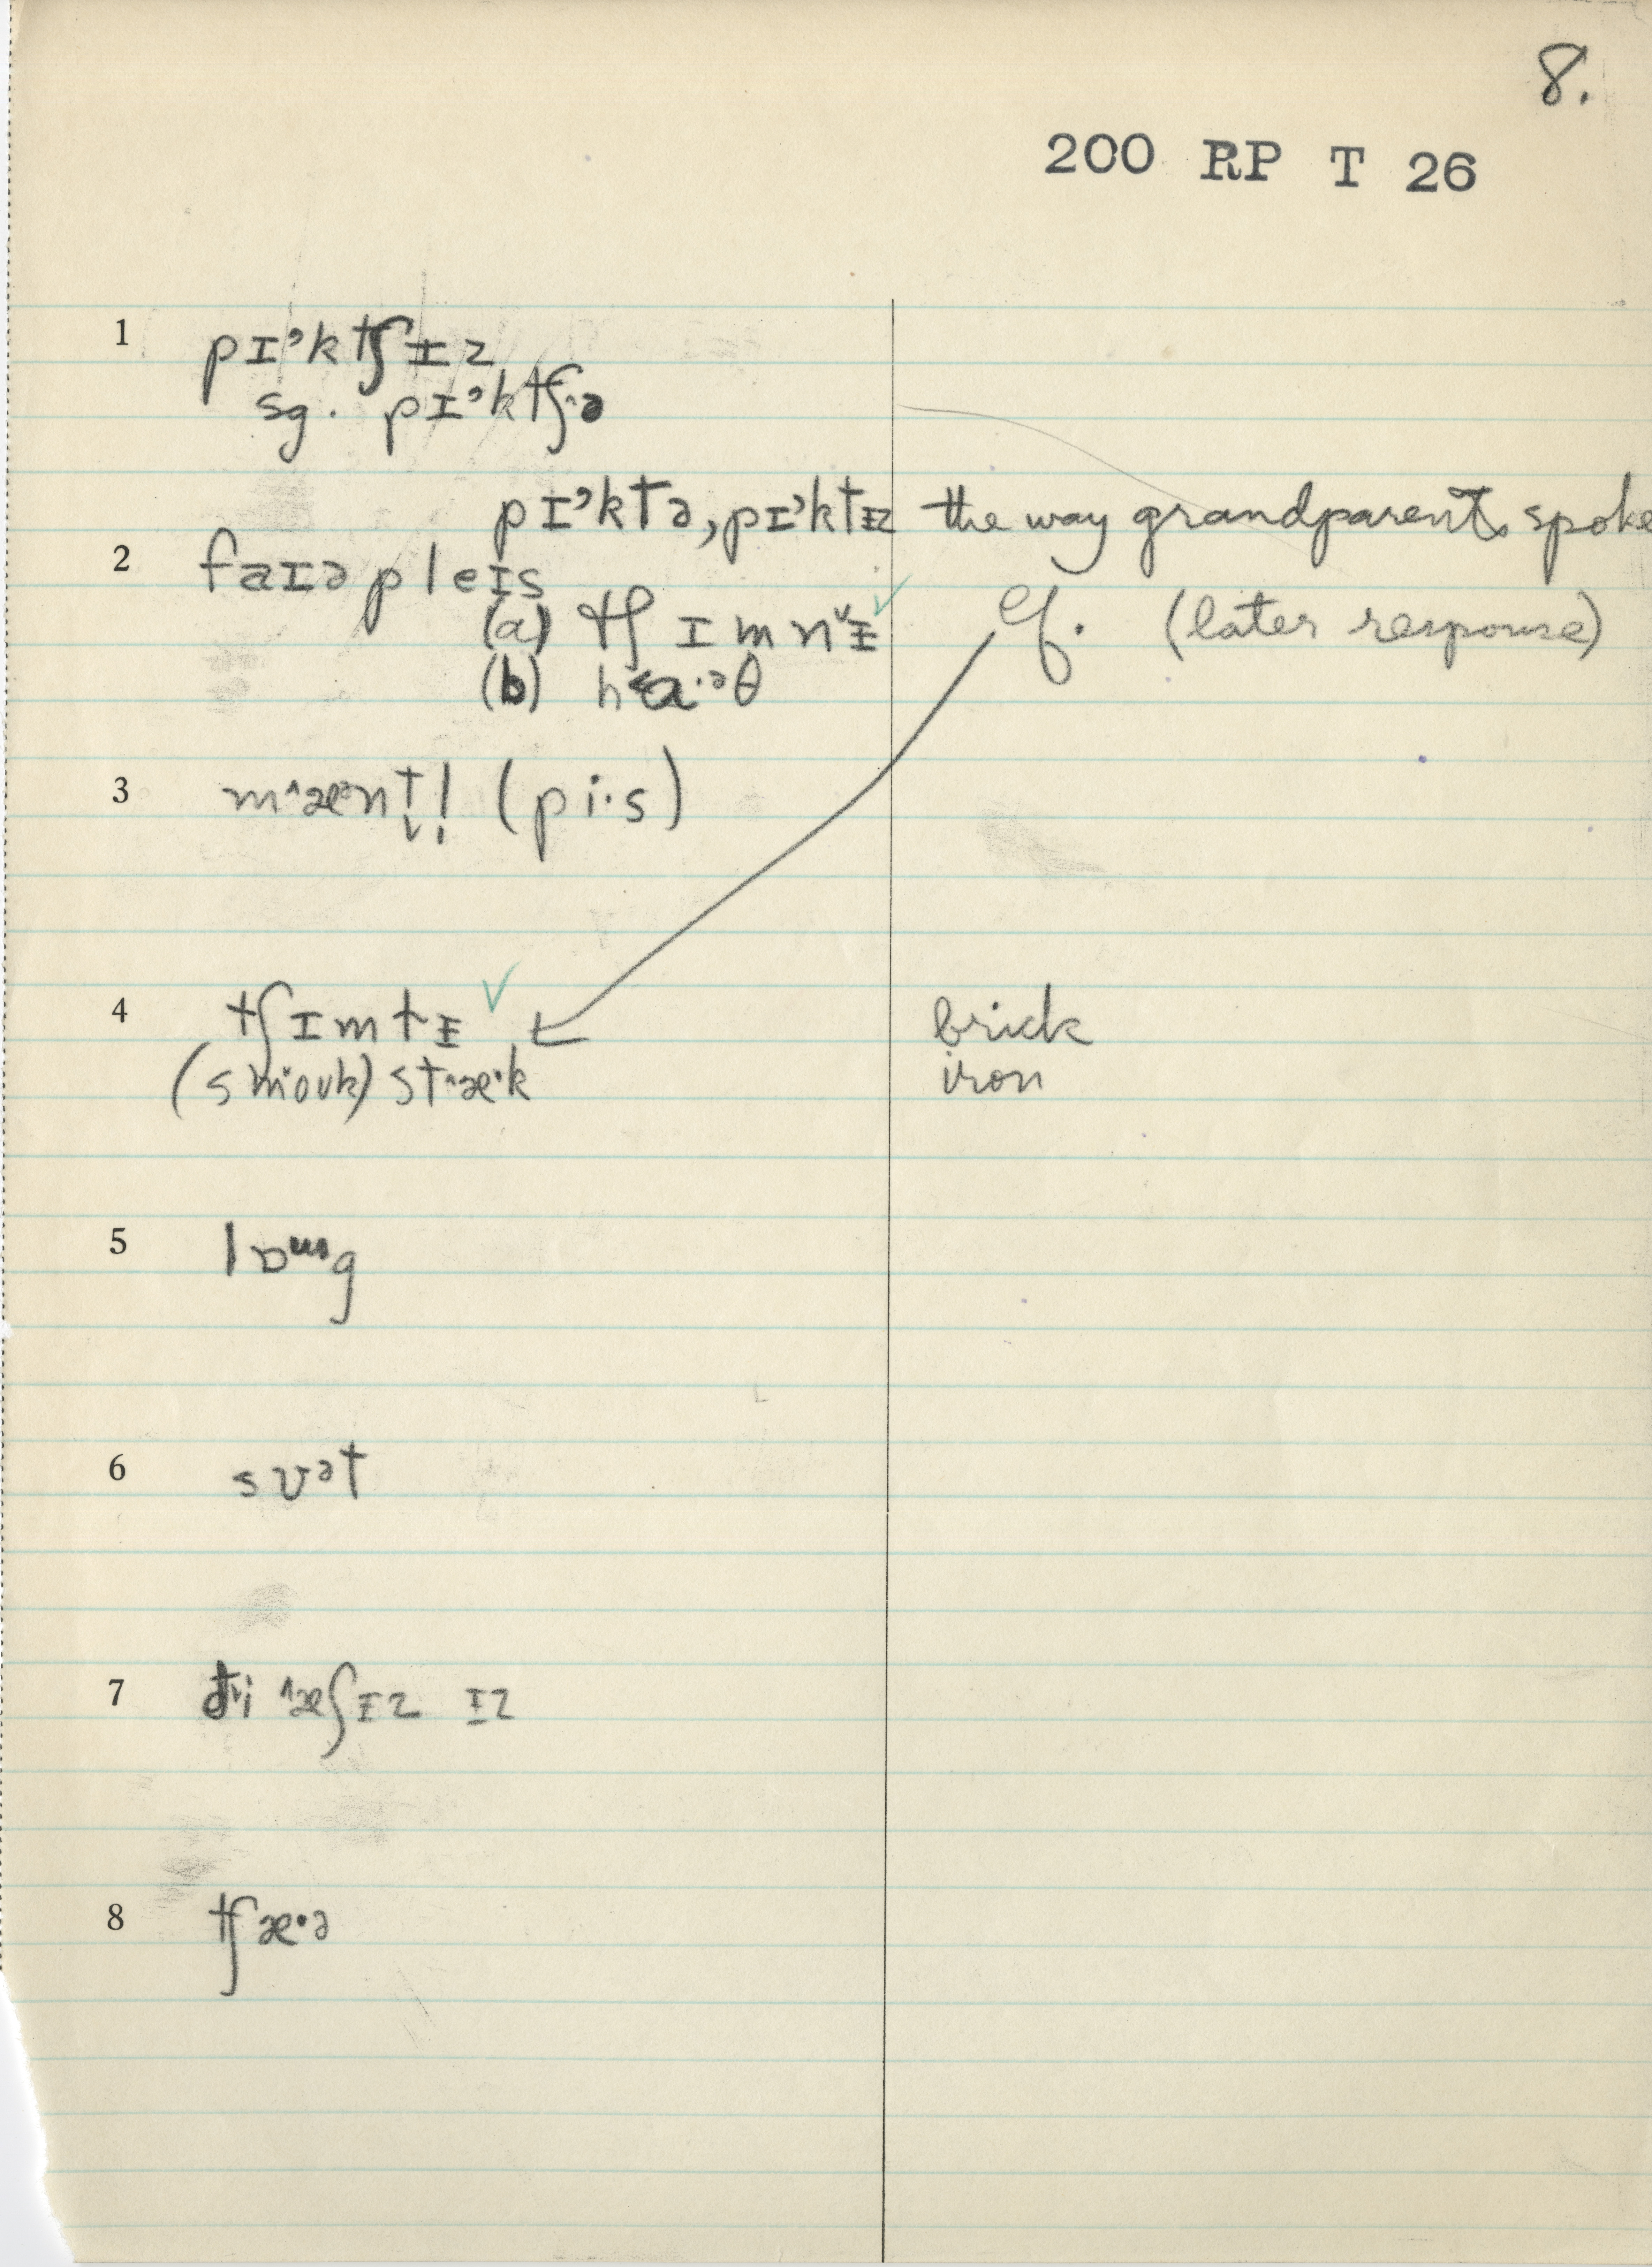 8.
200 RP T 26
1 pɪ˒ktʃɪ̵z
sg. pɪ˒ktʃ.ə
pɪ˒ktə, pɪ˒ktɪ̵z the way grandparents spoke
2 faɪə pleɪs
(a) tʃɪmnˇɪ̵ ✓ cf. (later response)
(b) h˂a·ᵊθ
3 m˄æᵊnt̬l̩ (pi·s)
4 tʃɪmtɪ̵ ✓ brick
(smoʊk) st˄æ·k iron
5 lɒᵚg
6 sʊᵊt
7 ði ˄æʃɪ̵z ɪ̵z
8 tʃæ·ə